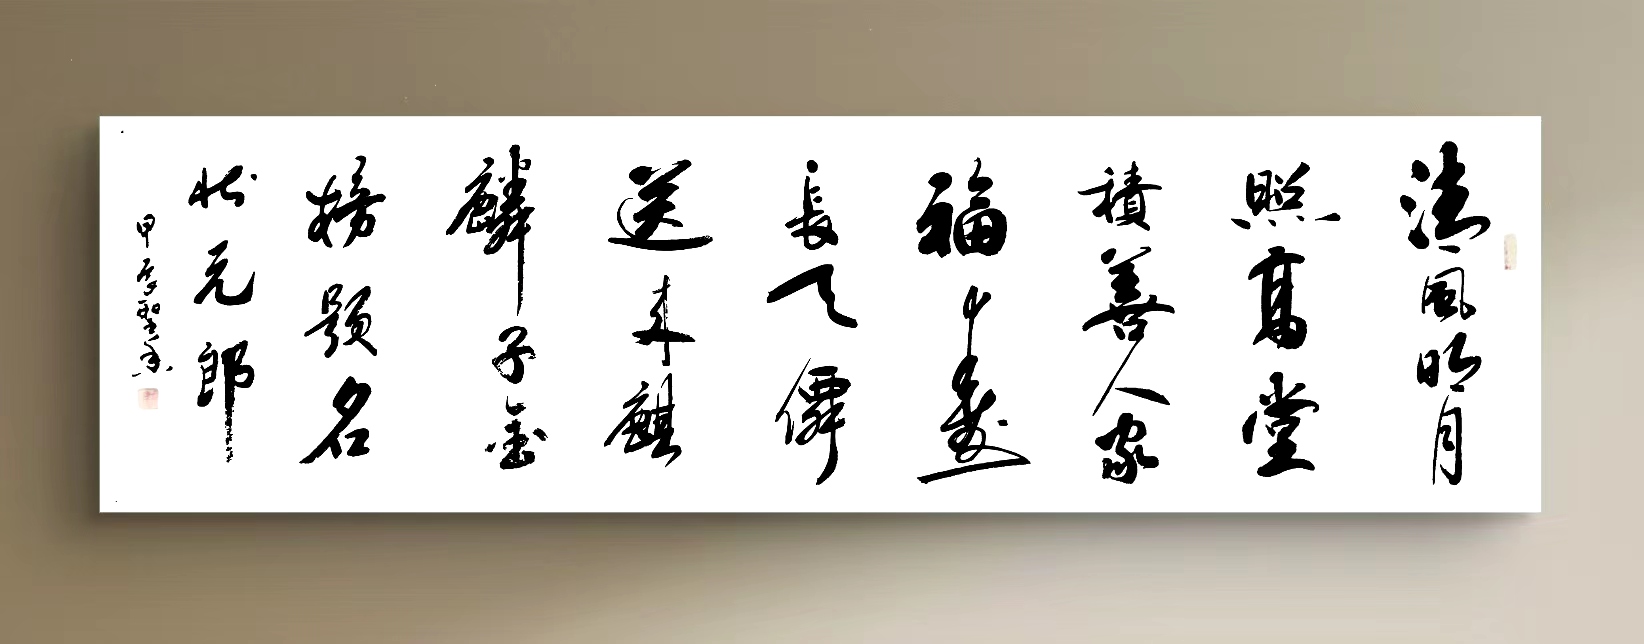 清風明月
照高堂
積善人家
福壽
長天僊
送来麒
麟子金
榜題名
状元郎
甲辰聖